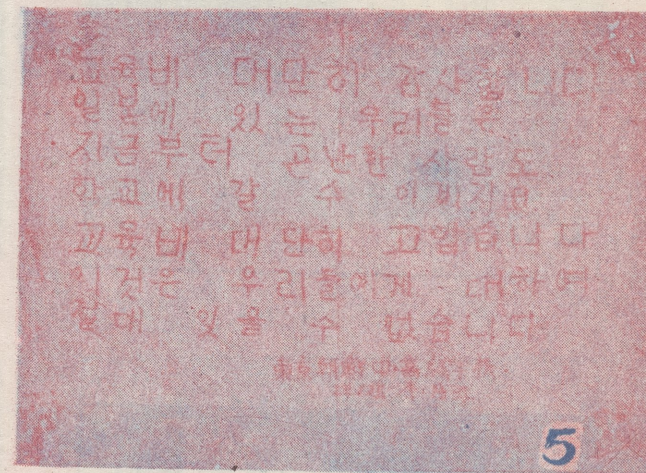 교육비 대단히 감사합니다
일본에 있는 우리들은
지금부터 곤난한 사람도
학교에 갈 수
교육비 대단히 고맙습니다
이것은 우리들에게 대하여
절대 잊을 수 없습니다
東京朝鮮中高
5